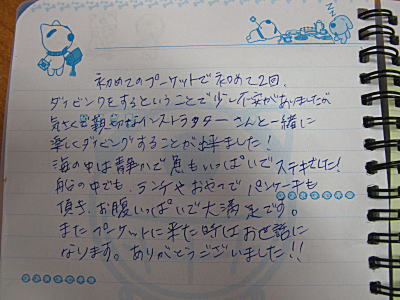 初めてのプーケットで初めて2回、
ダイビングをするということで少し不安がありましたが
気さくで親切なインストラクターさんと一緒に
楽しくダイビングすることが出来ました！
海の中は静かで魚もいっぱいでステキでした！
船の中でも、ランチやおやつでパンケーキも
頂き、お腹いっぱいで大満足です。
またプーケットに来た時はお世話に
なります。ありがとうございました!!